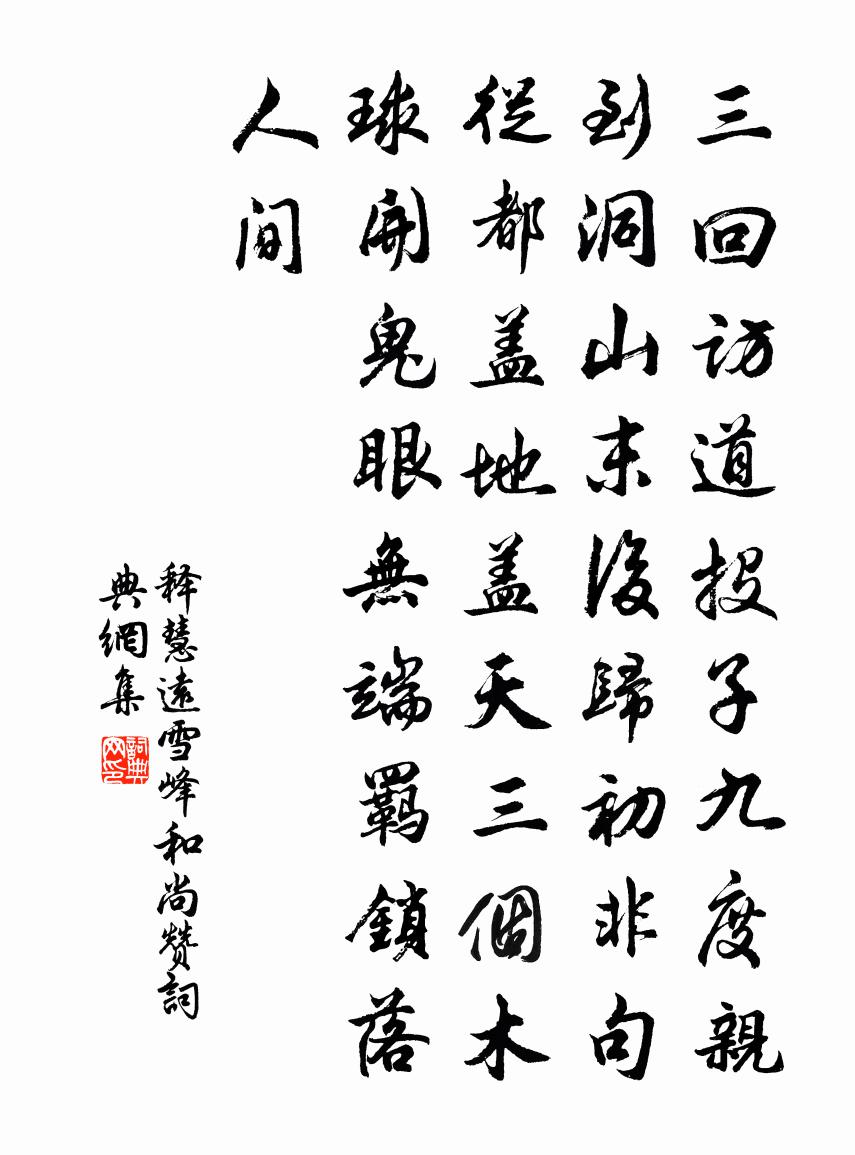 三回访道投子九度親
到洞山末後歸初非句
從都盖地盖天三個木
球開鬼眼無端羈鎖落
人间
释慧遠雪峰和尚赞詞
典網集
詞典
网印